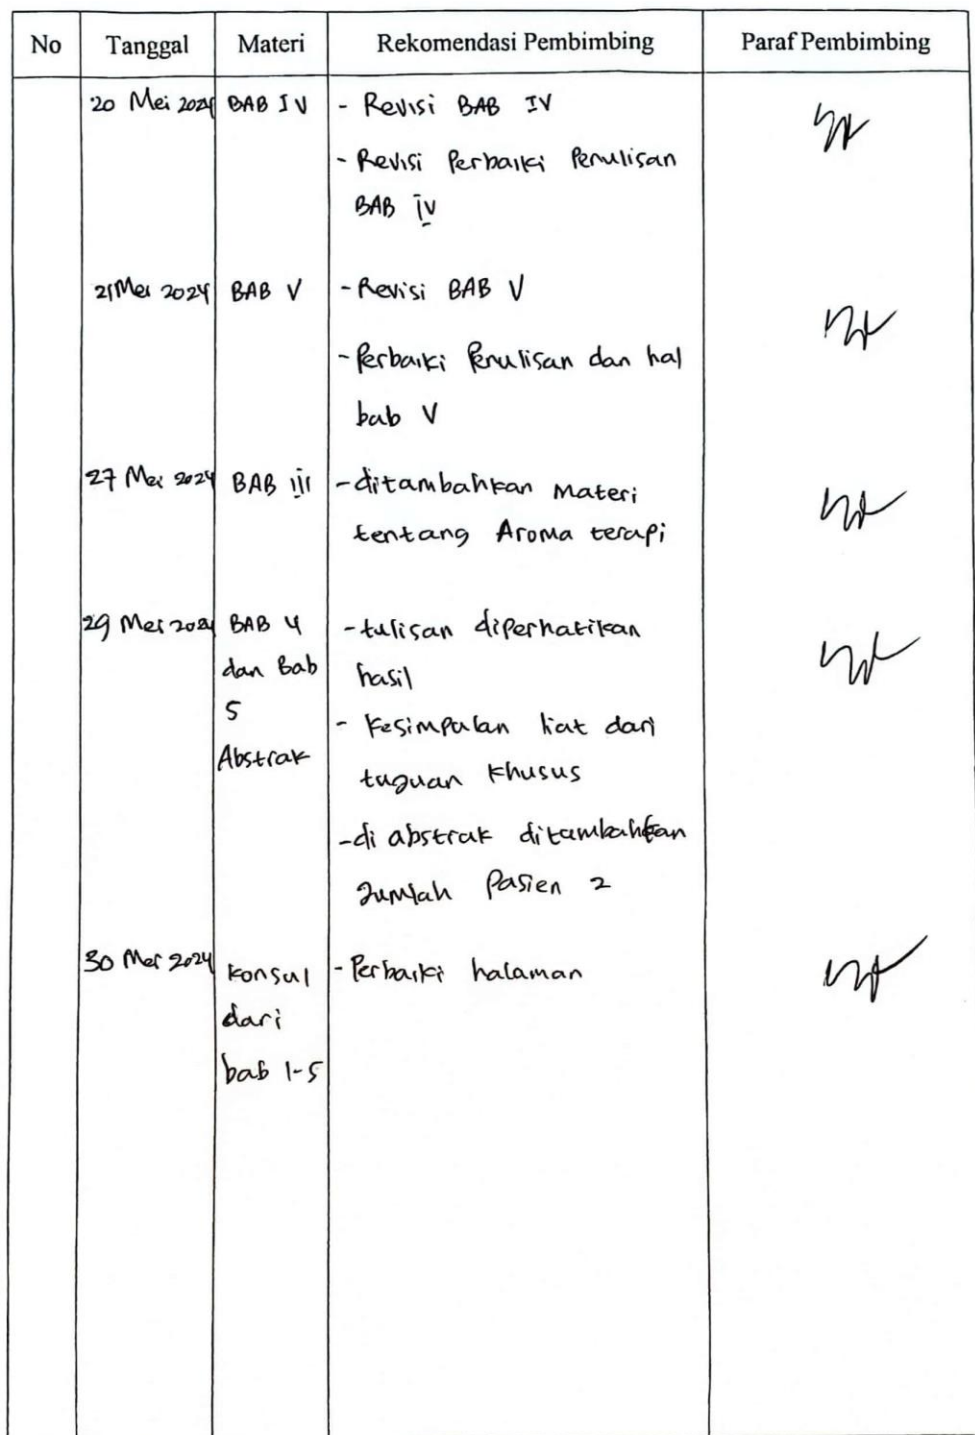 No Tanggal Materi Rekomendasi Pembimbing Paraf Pembimbing
20 Mei 2024 BAB IV - Revisi BAB IV
- Revisi Perbaiki Penulisan
BAB IV
21 Mei 2024 BAB V - Revisi BAB V
- Perbaiki Penulisan dan hal
bab V
27 Mei 2024 BAB III - ditambahkan Materi
tentang Aroma terapi
29 Mei 2024 BAB 4 - tulisan diperhatikan
dan Bab hasil
5 - Kesimpulan liat dari
Abstrak tuguan Khusus
- di abstrak ditambahkan
Jumlah Pasien 2
30 Mei 2024 Konsul - Perbaiki halaman
dari
bab 1-5